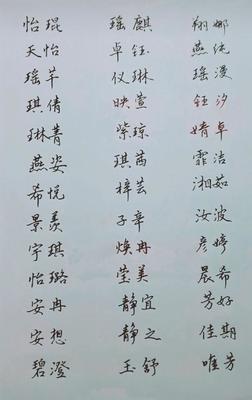 怡琨 瑶麒 翔娜
天怡 卓钰 燕纯
瑶芊 仪琳 瑶漫
琪倩 映萱 钰汐
琳菁 紫琼 婧卓
燕姿 琪茜 霏洁
希悦 梓芸 湘茹
景羡 子辛 汝波
宇琪 焕冉 彦婷
怡璐 莹美 晨希
安冉 静宜 芳好
安想 静之 佳期
碧澄 玉舒 唯芳